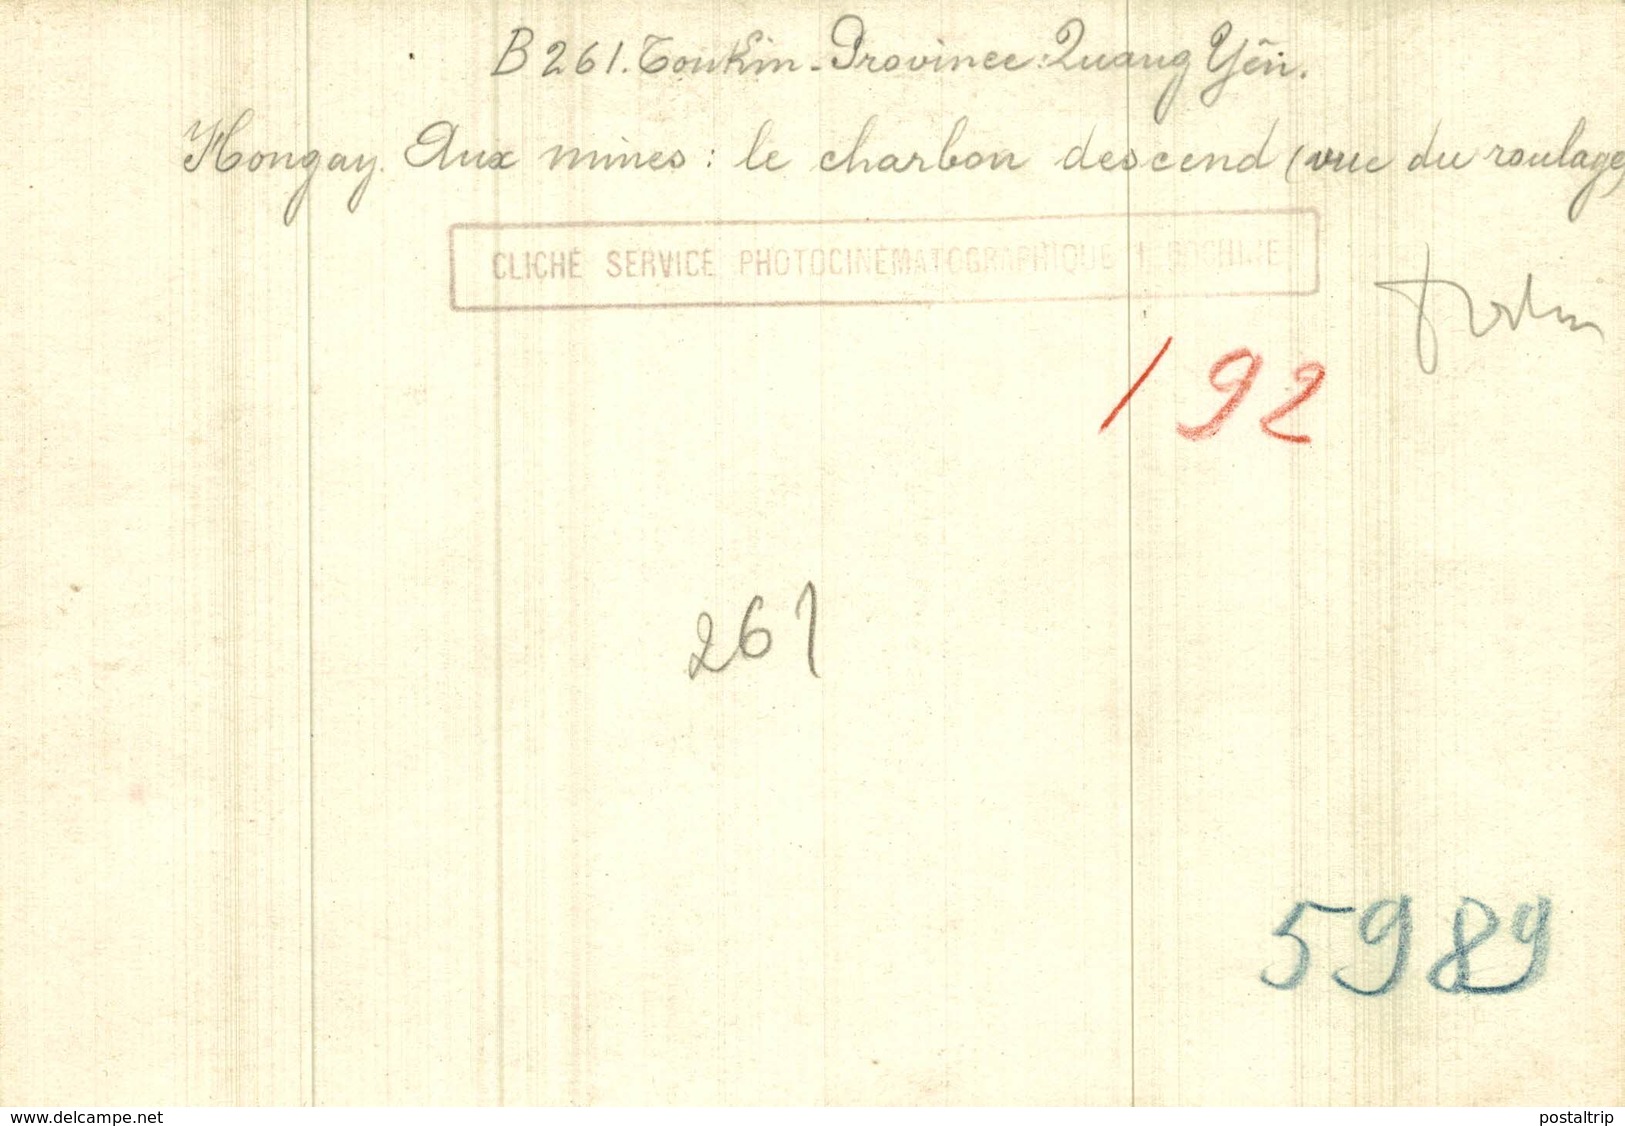 B261. Tonkin - Province: Quang Yên.
Hongay. Aux mines: le charbon descend (vue du roulage)
CLICHÉ SERVICE PHOTOCINÉMATOGRAPHIQUE INDOCHINE
192
261
5989
www.delcampe.net
postaltrip